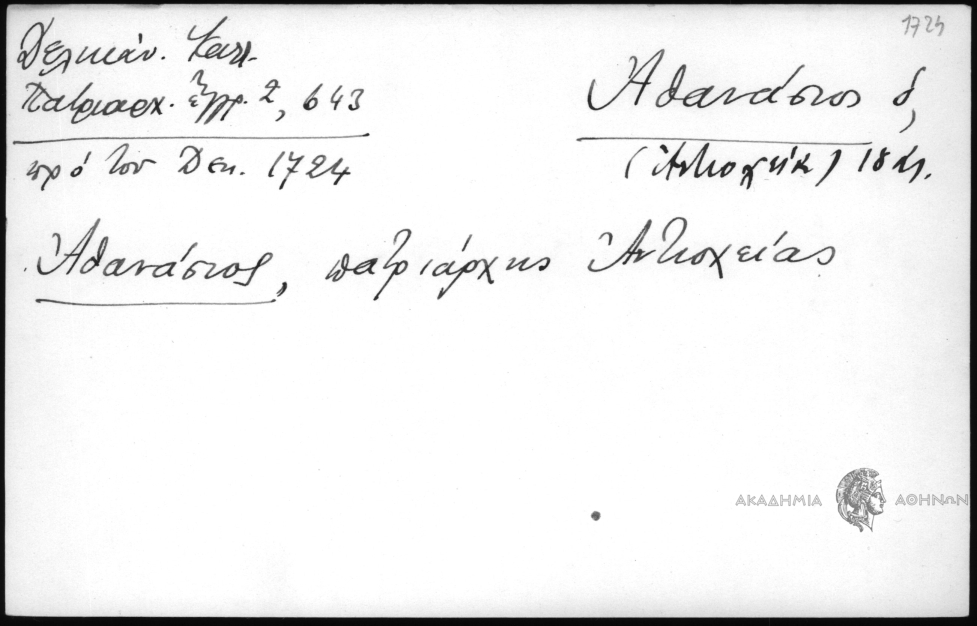 1724
Δελικάν. Καλλ.
Πατριαρχ. ἔγγρ. 2, 643
πρό του Δεκ. 1724
Ἀθανάσιος δ',
(Ἀντιοχεία) 18 αι.
Ἀθανάσιος, πατριάρχης Ἀντιοχείας
ΑΚΑΔΗΜΙΑ ΑΘΗΝΩΝ